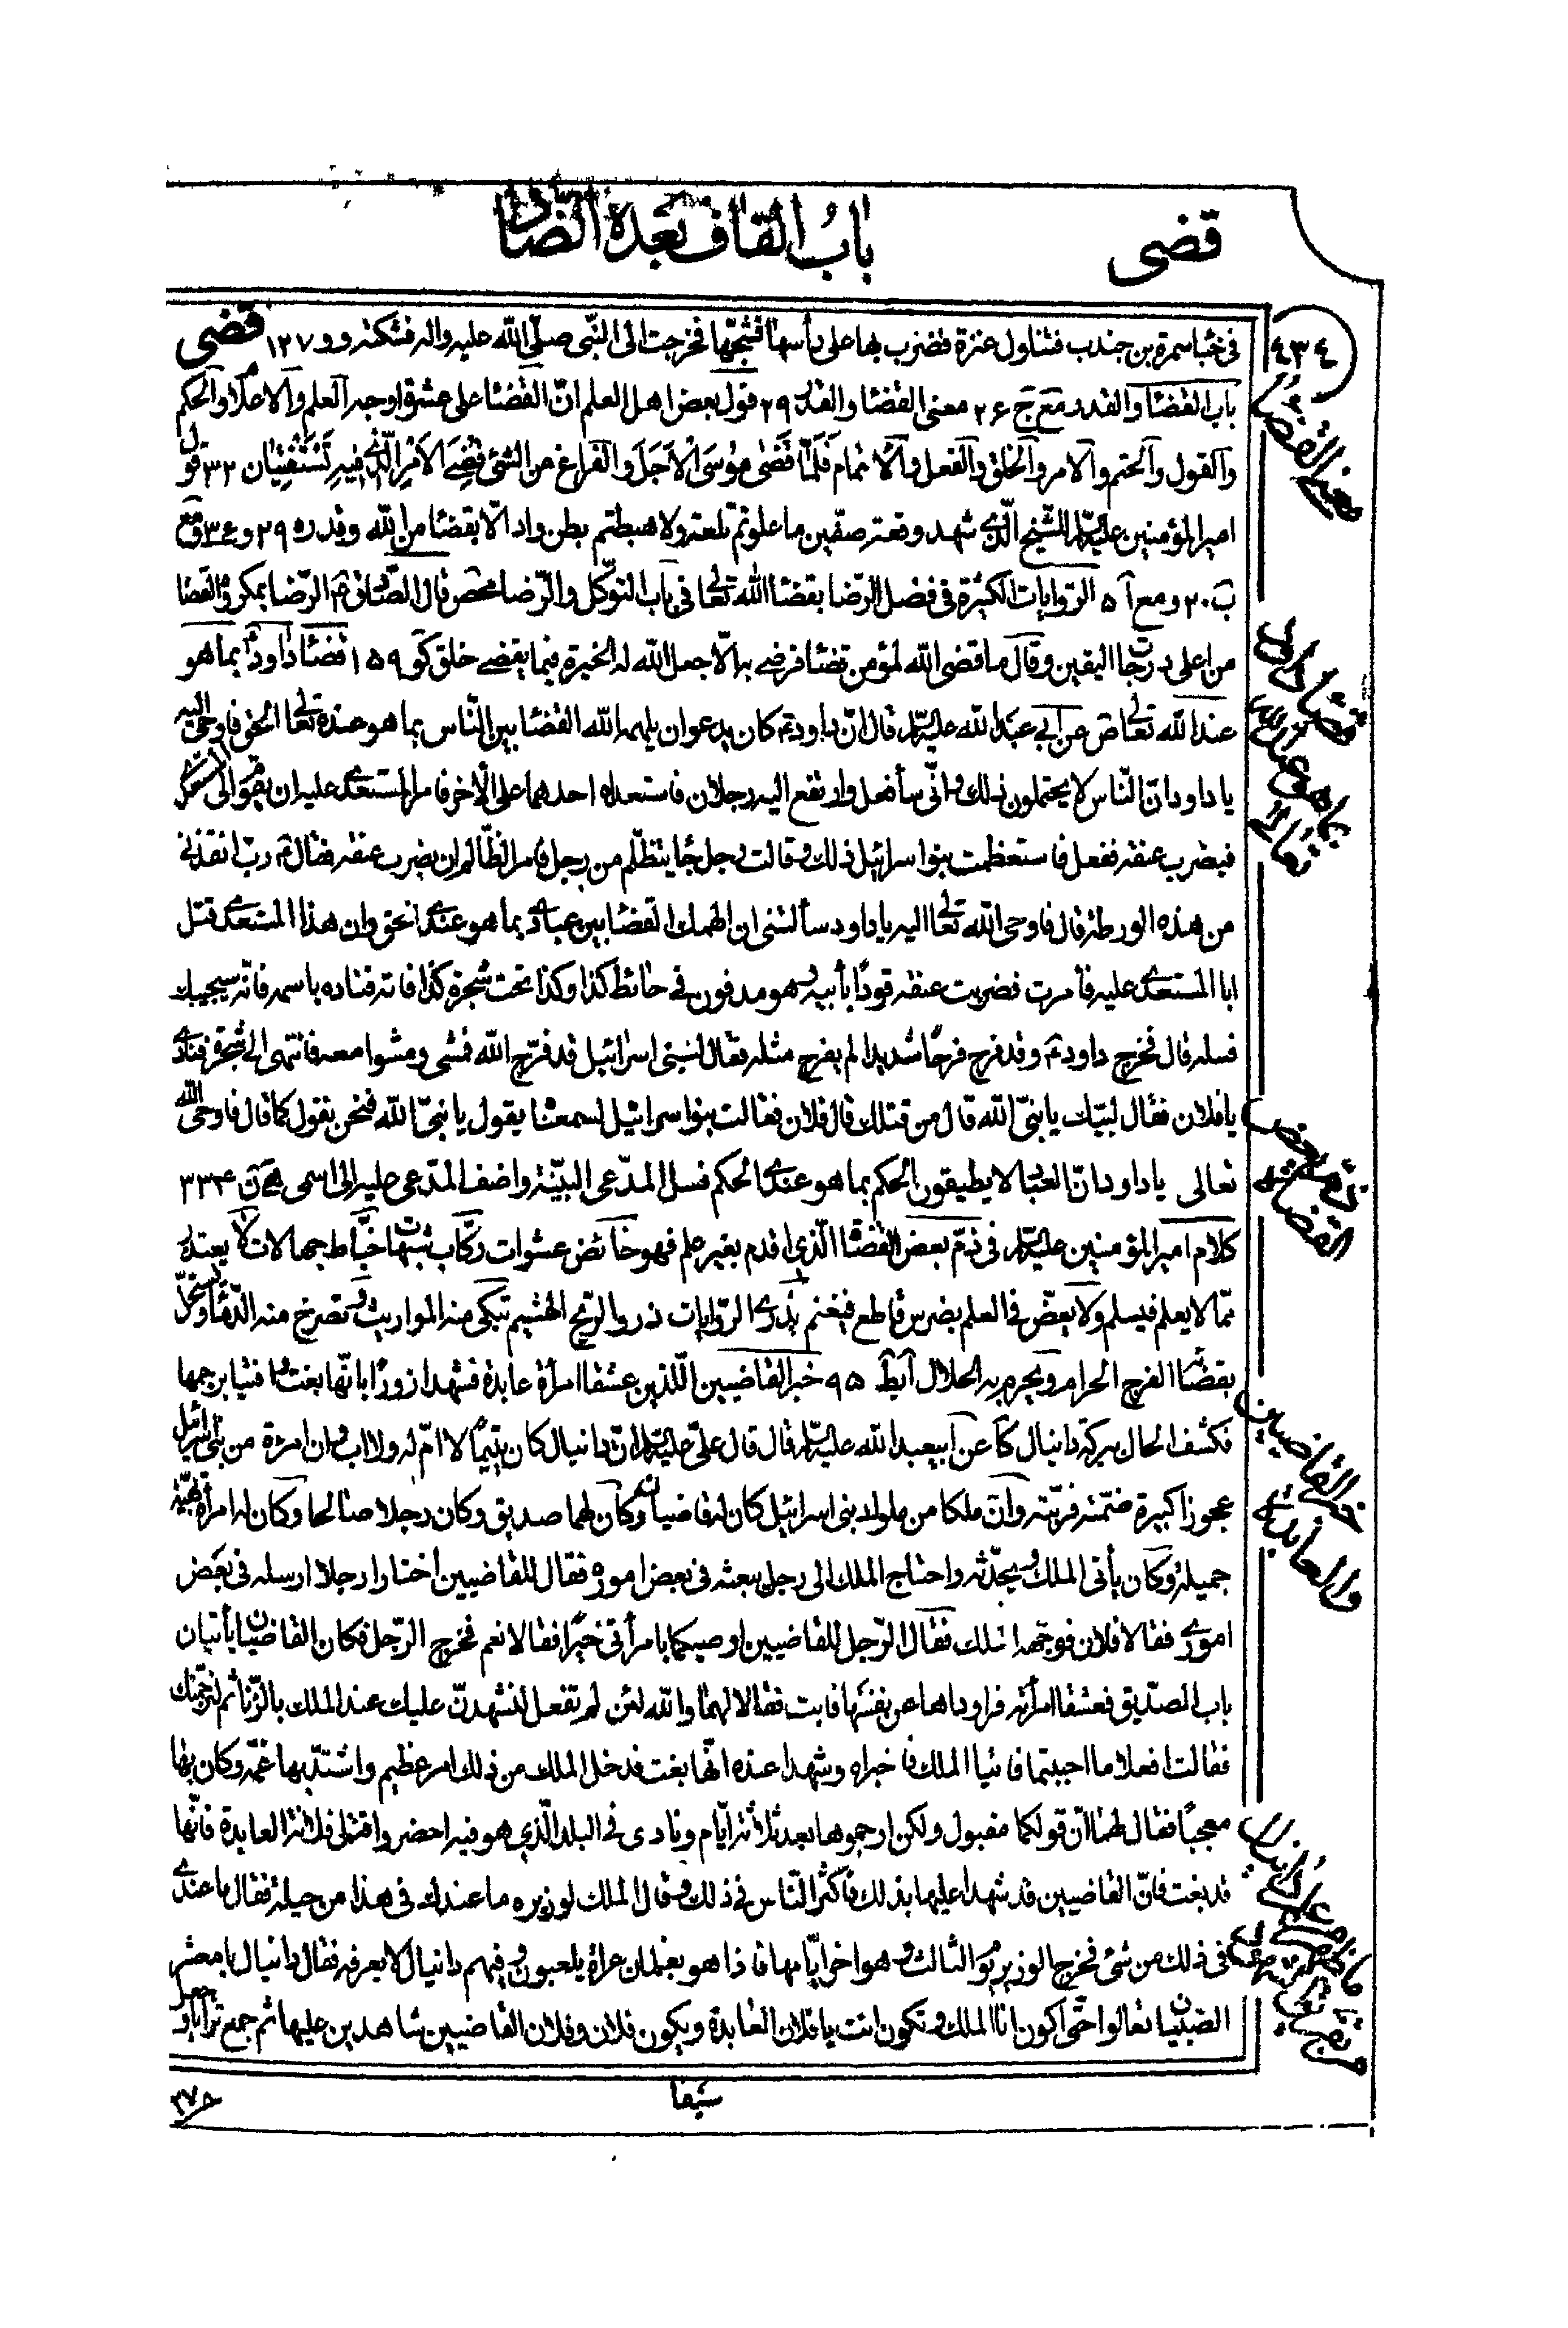 قضى
باب القاف بعده الضاد
٤٣٤
فى خباسمرة بن جندب فتناول عنزة فضرب بها على رأسها فشجّها فخرجت الى النّبى صلّى الله عليه واله فشكته وو ١٢٧ قضى
باب القضا والقدر مع ج ٢۶ معنى القضا والقدر ٢٩ قول بعض اهل العلم انّ القضا على عشرة اوجه العلم والاعلام والحكم
والقول والحتم والامر والخلق والفعل والاتمام فَلَمّا قَضٰى مُوسَى الْاَجَلَ والفراغ من الشئ قُضِىَ الْاَمْرُ الَّذى فيهِ تَسْتَفْتِيٰان ٣٢ قول
امير المؤمنين عليه السّلم للشّيخ الّذى شهد وقعة صفّين ما علوتم تلعة ولا هبطتم بطن واد الّا بقضا من الله وقدره ٢٩ و ٣۴ مع
ب ٢٠ ومع آ ۵ الرّوايات الكثيرة فى فضل الرّضا بقضا الله تعالى فى باب التوكّل والرّضا محص قال الصّادقؑ الرّضا بمكروه القضا
من اعلى درجات اليقين وقال ما قضى الله لمؤمن قضا فرضى به الّا جعل الله له الخيرة فيما يقضى خلق كو ١۵٩ قضا داود بما هو
عند الله تعالى ص عن ابى عبد الله عليه السّلم قال انّ داودؑ كان يدعو ان يلهمه الله القضا بين النّاس بما هو عنده تعالى الحق فاوحى اليه
يا داود انّ النّاس لا يحتملون ذلك وانّى سأفعل وارتفع اليه رجلان فاستعداه احدهما على الاخر فامر المستعدى عليه ان يقوم الى المستعدى
فيضرب عنقه ففعل فاستعظمت بنو اسرائيل ذلك وقالت رجل جا يتظلّم من رجل فامر الظّالم ان يضرب عنقه فقالؑ ربّ انقذنى
من هذه الورطة قال فاوحى الله تعالى اليه يا داود سألتنى ان الهمك القضا بين عبادى بما هو عندى الحق وان هذا المستعدى قتل
ابا المستعدى عليه فأمرت فضربت عنقه قودًا بأبيه وهو مدفون فى حائط كذا وكذا تحت شجرة كذا فاته فناده باسمه فانّه سيجيبك
فسله قال فخرج داودؑ وقد فرح فرحًا شديدا لم يفرح مثله فقال لبنى اسرائيل قد فرّج الله فمشى ومشوا معه فانتهى الى شجرة فنادى
يا فلان فقال لبّيك يا نبىّ الله قال من قتلك قال فلان فقالت بنو اسرائيل لسمعنا يقول يا نبىّ الله فنحن نقول كما قال فاوحى الله
تعالى يا داود انّ العبا لا يطيقون الحكم بما هو عندى الحكم فسل المدّعى البيّنة واضف المدّعى عليه الى اسمى ٣٣۴
كلام امير المؤمنين عليه السّلم فى ذمّ بعض القضا الّذى اقدم بغير علم فهو خائض عشوات ركّاب شبهات خبّاط جهالات لا يعتذر
ممّا لا يعلم فيسلم ولا يعضّ فى العلم بضرس قاطع فيغنم يذرى الرّوايات ذرو الرّيح الهشيم تبكى منه المواريث وتصرخ منه الدّماء ويستحلّ
بقضائه الفرج الحرام ويحرم به الحلال ٩۵ خبر القاضيين اللّذين عشقا امرأة عابدة فشهدا زورًا بانّها بغت وامتثيا برجمها
فكشف الحال ببركة دانيال كا عن ابيعبد الله عليه السّلم قال قال علىّ عليه السّلم انّ دانيال كان يتيمًا لا امّ له ولا اب وان امرئة من بنى اسرائيل
عجوزا كبيرة ضمّته فربّته وانّ ملكا من ملوك بنى اسرائيل كان له قاضيان وكان لهما صديق وكان رجلا صالحا وكان له امرأة بهيّة
جميلة وكان يأتى الملك ويحدّثه واحتاج الملك الى رجل يبعثه فى بعض اموره فقال للقاضيين اختارا رجلا ارسله فى بعض
امورى فقالا فلان فوجّهه الملك فقال الرّجل للقاضيين اوصيكما بامرأتى خيرًا فقالا نعم فخرج الرّجل فكان القاضيان يأتيان
باب الصّديق فعشقا امرأته فراوداها عن نفسها فابت فقالا لهما والله لئن لم تفعل لنشهدنّ عليك عند الملك بالزّنا ثم لنرجمنّك
فقالت افعلا ما احببتما فاتيا الملك فاخبراه وشهدا عنده انّها بغت فدخل الملك من ذلك امر عظيم واشتدّ بها غمّه وكان بها
معجبًا فقال لهما انّ قولكما مقبول ولكن ارجموها بعد ثلاثة ايّام ونادى فى البلد الّذى هو فيه احضروا قتل فلانة العابدة فانّها
قد بغت فانّ القاضيين قد شهدا عليها بذلك فاكثر النّاس فى ذلك وقال الملك لوزيره ما عندك فى هذا من حيلة فقال ما عندى
فى ذلك من شئ فخرج الوزير يوم الثالث وهو اخر ايّامها فاذا هو بغلمان عراة يلعبون وفيهم دانيال لا يعرفه فقال دانيال يا معشر
الصّبيان تعالوا حتّى اكون انا الملك وتكون انت يا فلان العابدة ويكون فلان وفلان القاضيين شاهدين عليها ثم جمع ترابا وجعل
سيفا
معنى القضا
قضا داود
بما هو عند الله
تعالى
ذمّ بعض
القضاة
خبر القاضيين
والعابدة